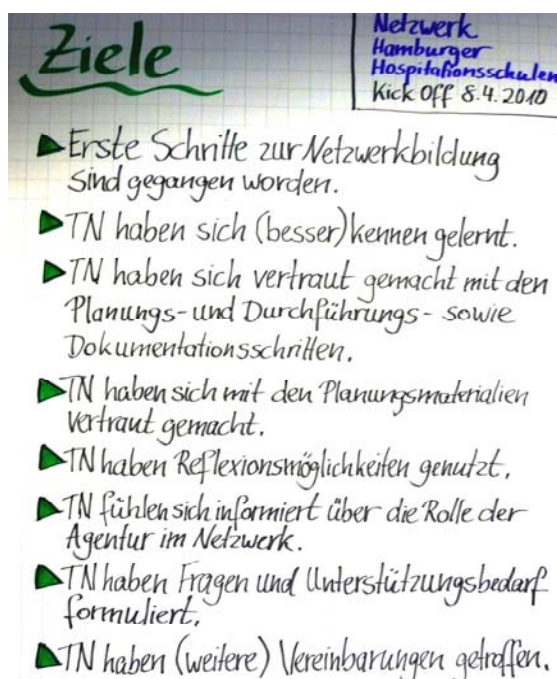 Ziele
Netzwerk
Hamburger
Hospitationsschulen
Kick Off 8.4.2010
Erste Schritte zur Netzwerkbildung
sind gegangen worden.
TN haben sich (besser) kennen gelernt.
TN haben sich vertraut gemacht mit den
Planungs- und Durchführungs- sowie
Dokumentationsschritten.
TN haben sich mit den Planungsmaterialien
vertraut gemacht.
TN haben Reflexionsmöglichkeiten genutzt.
TN fühlen sich informiert über die Rolle der
Agentur im Netzwerk.
TN haben Fragen und Unterstützungsbedarf
formuliert.
TN haben (weitere) Vereinbarungen getroffen.